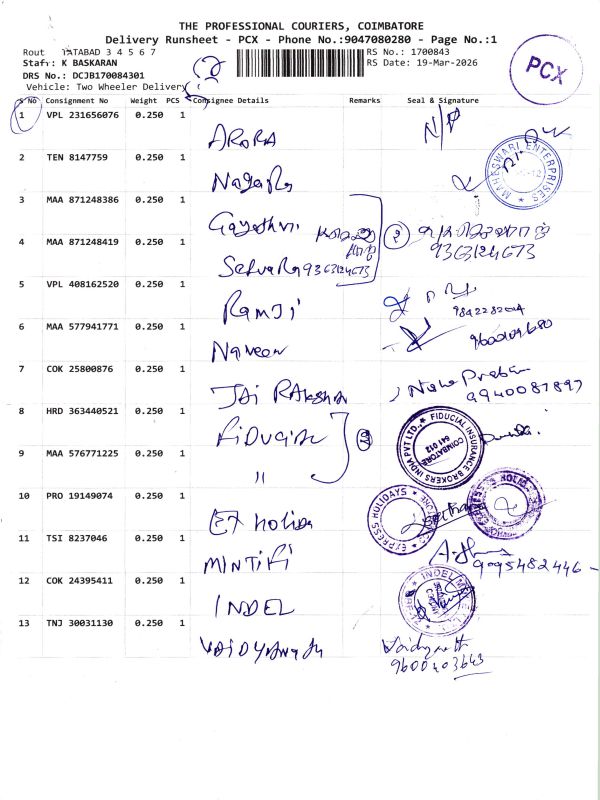 THE PROFESSIONAL COURIERS, COIMBATORE
Delivery Runsheet - PCX - Phone No.:9047080280 - Page No.:1
Rout TATABAD 3 4 5 6 7
RS No.: 1700843
Staff: K BASKARAN
RS Date: 19-Mar-2026
DRS No.: DCJB170084301
Vehicle: Two Wheeler Delivery
PCX
S No Consignment No Weight PCS Consignee Details Remarks Seal & Signature
1 VPL 231656076 0.250 1 ARORA N/D
2 TEN 8147759 0.250 1 Nagara
MAHESWARI ENTERPRISES
3 MAA 871248386 0.250 1 Gayathri
4 MAA 871248419 0.250 1 Selvara 9363124673
2 9363124673
5 VPL 408162520 0.250 1 RAMJI
6 MAA 577941771 0.250 1 Naveen
7 COK 25800876 0.250 1 JAI RAksha
9940087897
8 HRD 363440521 0.250 1 Fiducia
FIDUCIAL INSURANCE BROKERS INDIA PVT LTD. COIMBATORE 641 012
9 MAA 576771225 0.250 1 "
10 PRO 19149074 0.250 1 EX Holida
EXPRESS HOLIDAYS
11 TSI 8237046 0.250 1 MINTIFI
9095482446
12 COK 24395411 0.250 1 INDEL
13 TNJ 30031130 0.250 1 VAIDYANATH
Vaidyanath
9600403643